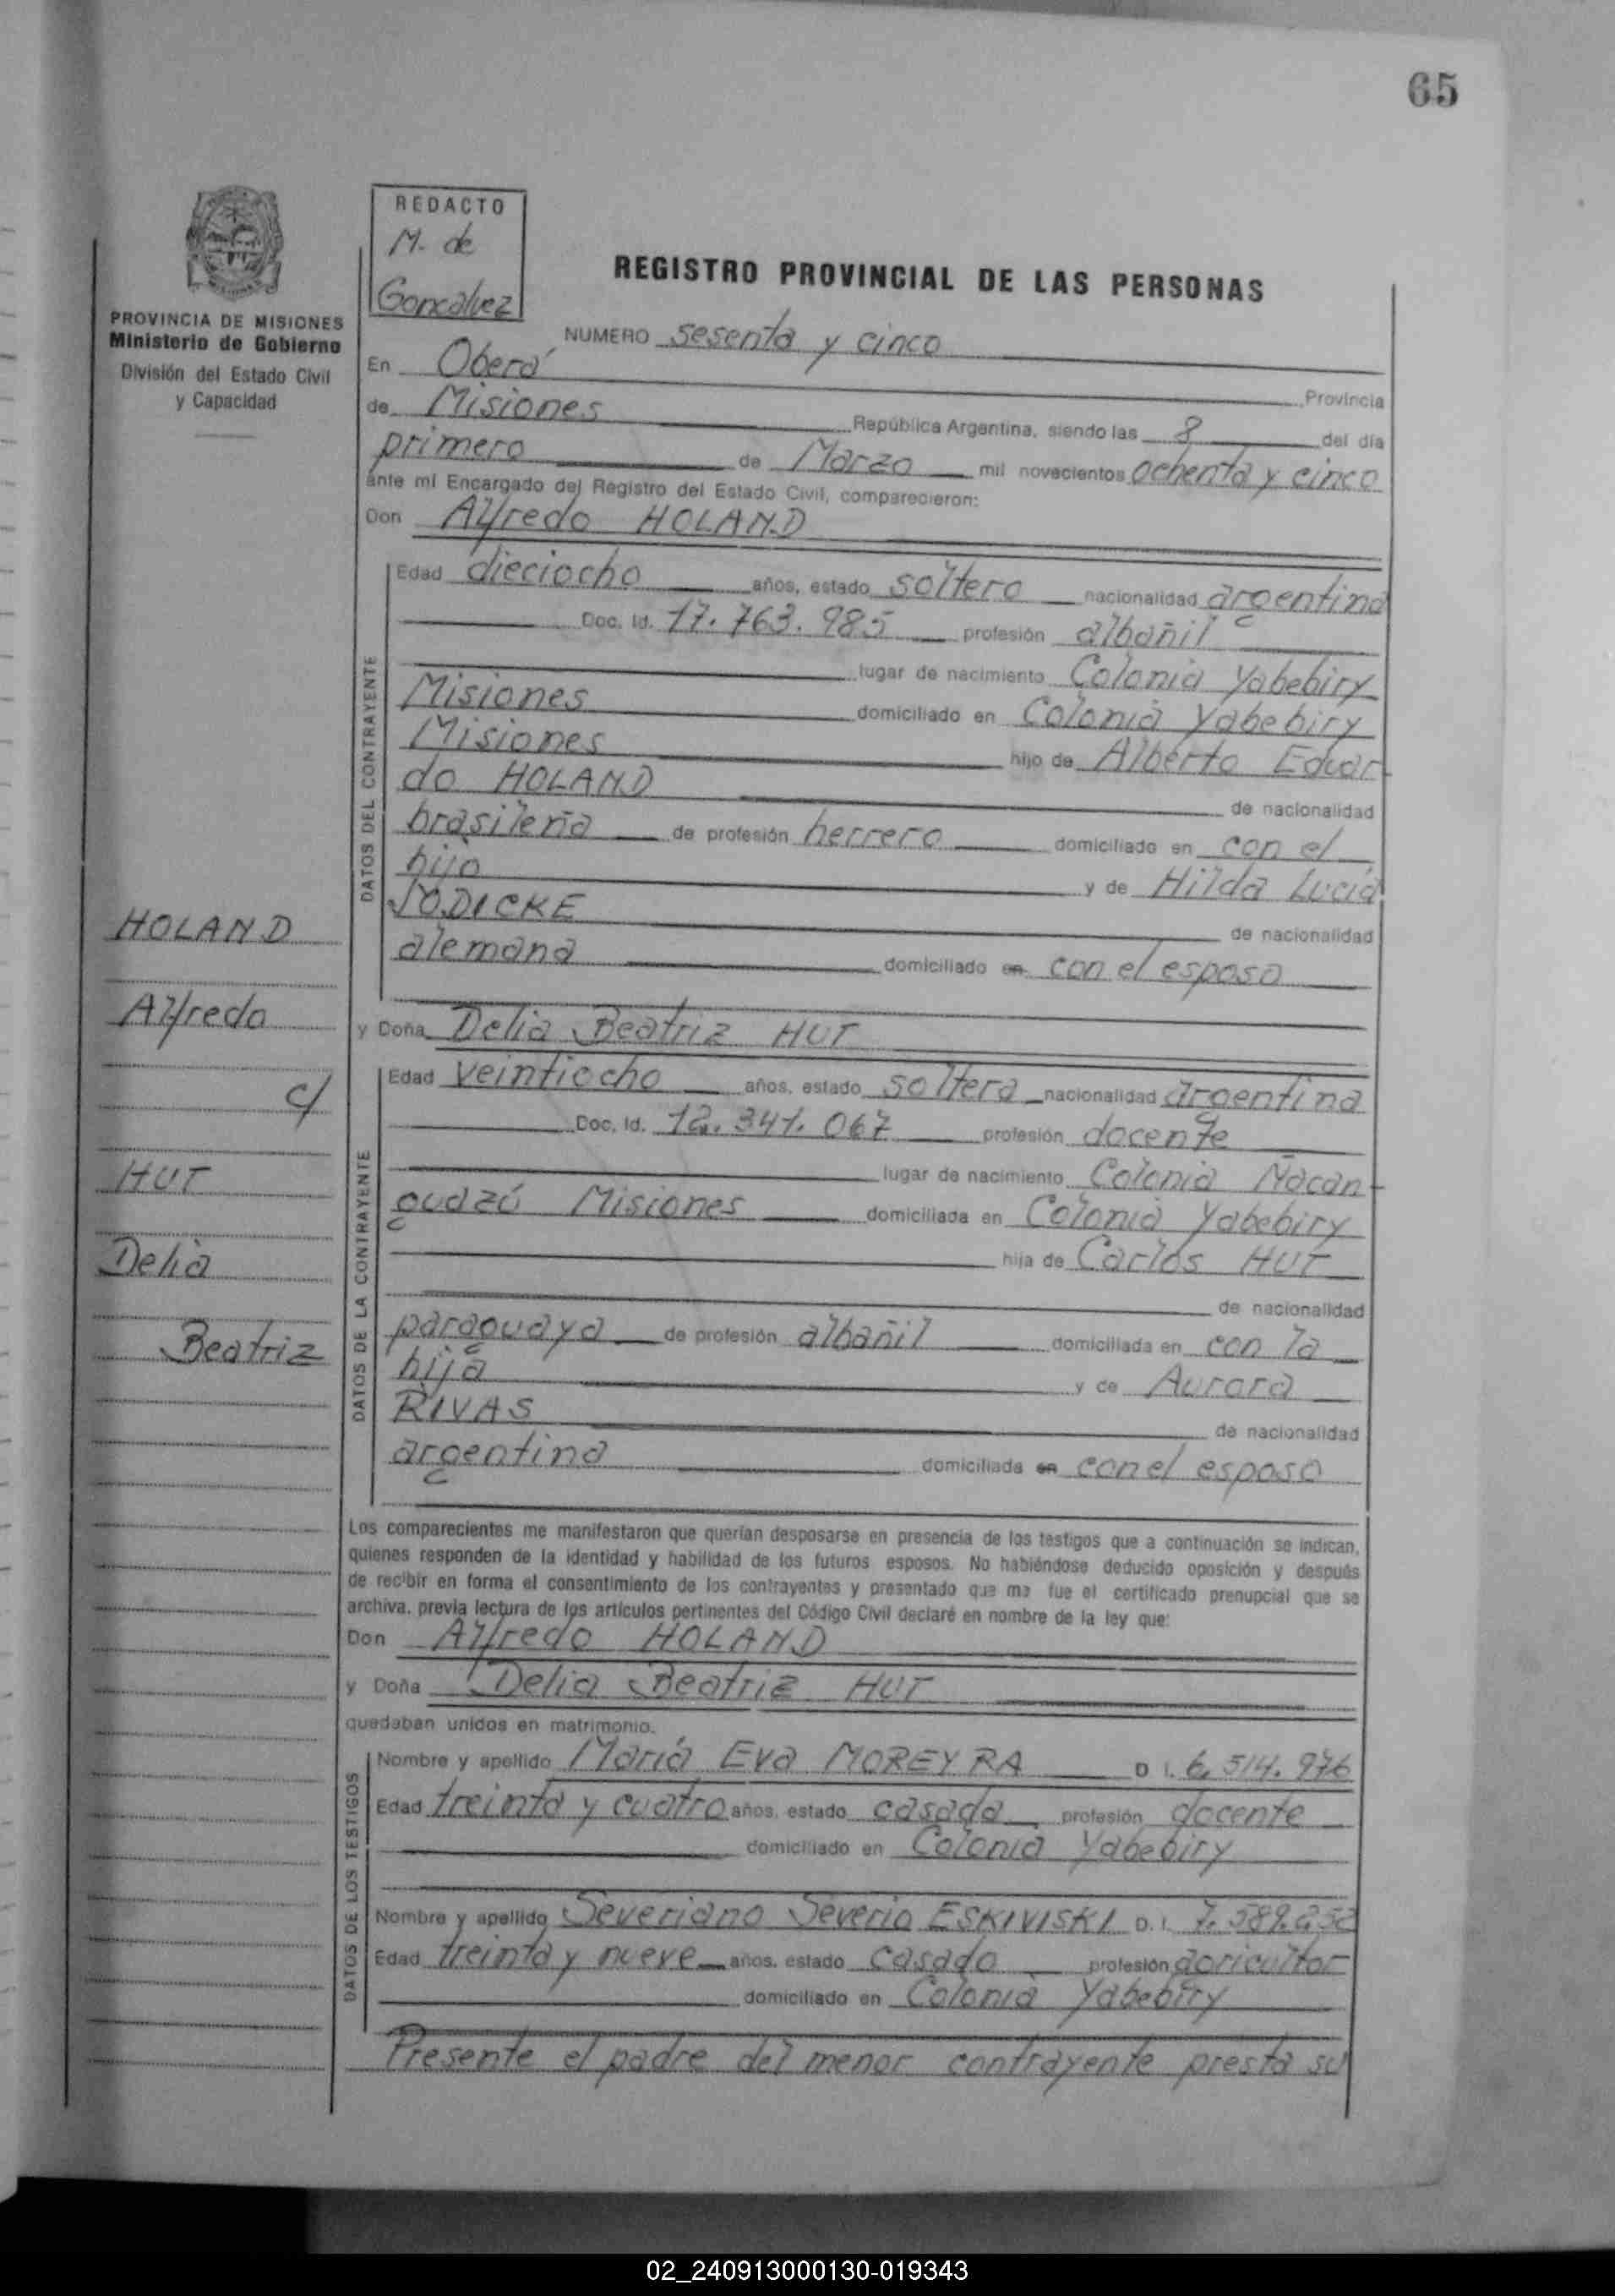 65
REDACTO
M. de
Goncalvez
PROVINCIA DE MISIONES
Ministerio de Gobierno
División del Estado Civil
y Capacidad
REGISTRO PROVINCIAL DE LAS PERSONAS
NUMERO sesenta y cinco
En Oberá Provincia
de Misiones República Argentina, siendo las 8 del día
primero de Marzo mil novecientos ochenta y cinco
ante mi Encargado del Registro del Estado Civil, comparecieron:
Don Alfredo HOLAND
DATOS DEL CONTRAYENTE
Edad dieciocho años, estado soltero nacionalidad argentina
Doc. Id. 17.763.985 profesión albañil
lugar de nacimiento Colonia Yabebiry
Misiones domiciliado en Colonia Yabebiry
Misiones hijo de Alberto Eduar-
do HOLAND de nacionalidad
brasileña de profesión herrero domiciliado en con el
hijo y de Hilda Lucia
JODICKE de nacionalidad
alemana domiciliado en con el esposo
y Doña Delia Beatriz HUT
DATOS DE LA CONTRAYENTE
Edad veintiocho años, estado soltera nacionalidad argentina
Doc. Id. 12.341.067 profesión docente
lugar de nacimiento Colonia Ñacan-
guazú Misiones domiciliada en Colonia Yabebiry
hija de Carlos HUT
de nacionalidad
paraguaya de profesión albañil domiciliada en con la
hija y de Aurora
RIVAS de nacionalidad
argentina domiciliada en con el esposo
HOLAND
Alfredo
c/
HUT
Delia
Beatriz
Los comparecientes me manifestaron que querían desposarse en presencia de los testigos que a continuación se indican,
quienes responden de la identidad y habilidad de los futuros esposos. No habiéndose deducido oposición y después
de recibir en forma el consentimiento de los contrayentes y presentado que me fue el certificado prenupcial que se
archiva, previa lectura de los artículos pertinentes del Código Civil declaré en nombre de la ley que:
Don Alfredo HOLAND
y Doña Delia Beatriz HUT
quedaban unidos en matrimonio.
DATOS DE LOS TESTIGOS
Nombre y apellido María Eva MOREYRA D. I. 6.514.976
Edad treinta y cuatro años, estado casada profesión docente
domiciliado en Colonia Yabebiry
Nombre y apellido Severiano Severio ESKIVISKI D. I. 7.589.252
Edad treinta y nueve años, estado casado profesión agricultor
domiciliado en Colonia Yabebiry
Presente el padre del menor contrayente presta su
02_240913000130-019343